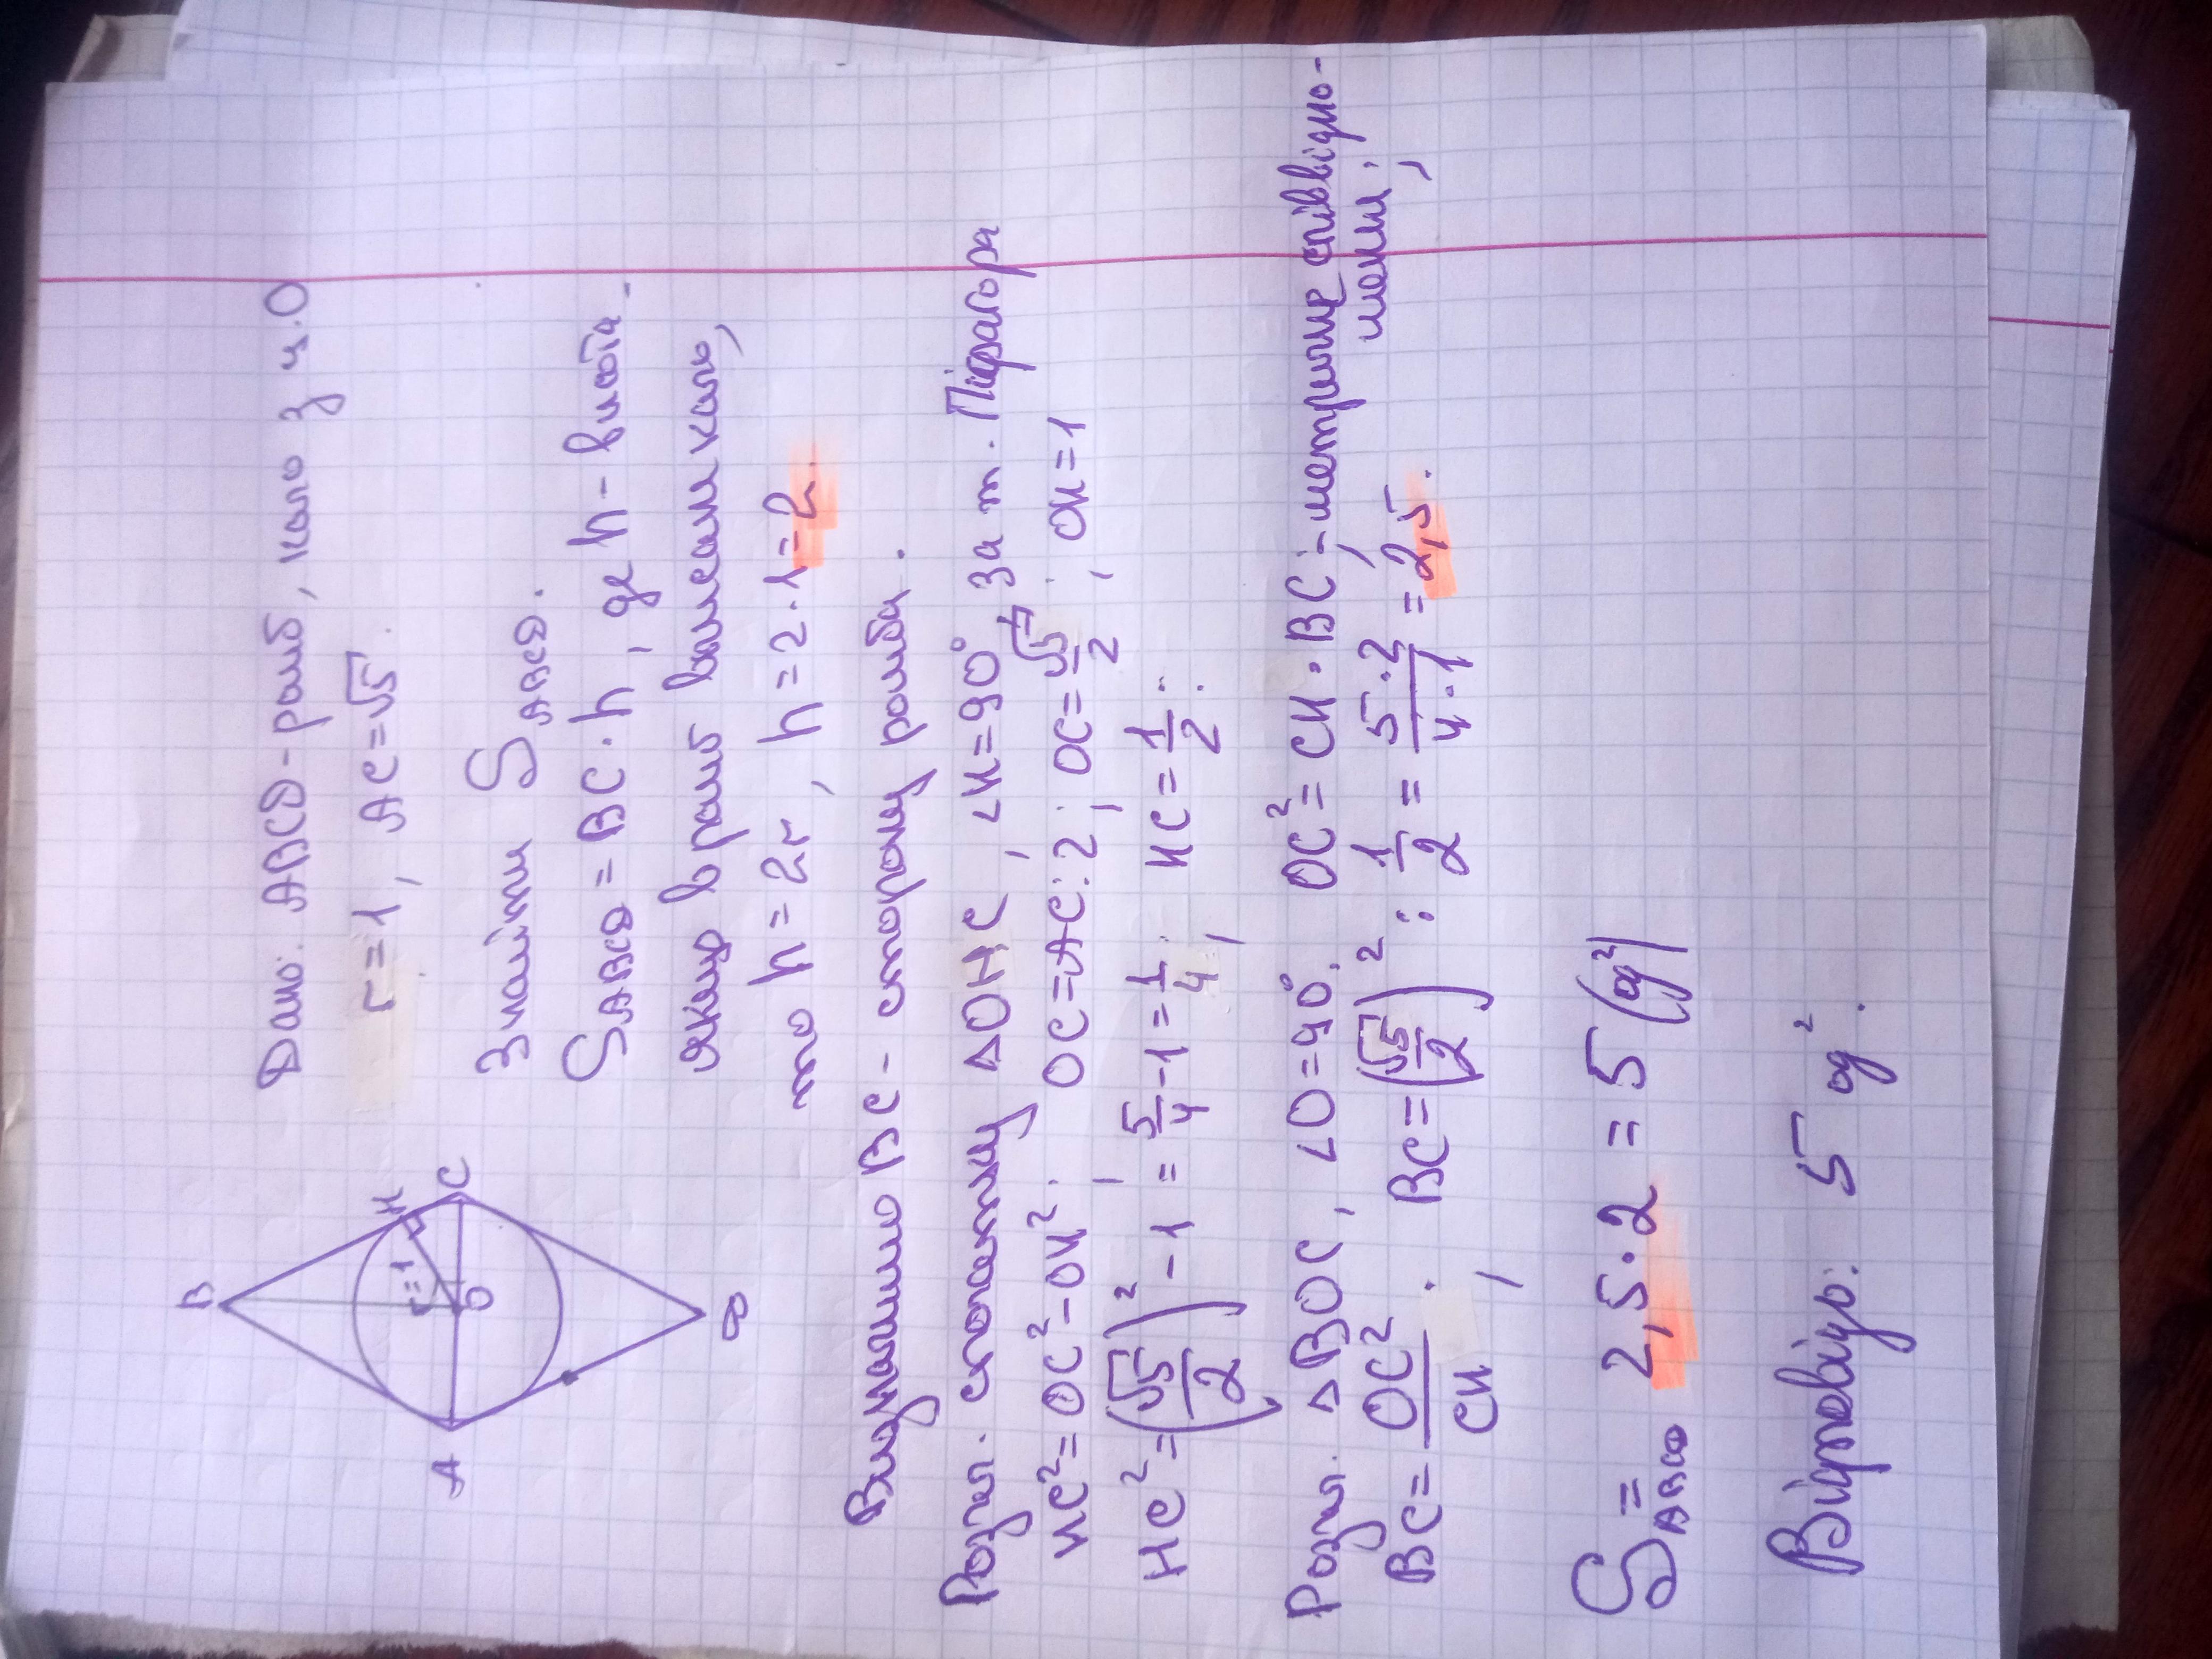 B
r=1
H
A
O
C
D
Дано: ABCD-ромб, коло з ц.О
r=1, AC=√5.
Знайти S ABCD.
S ABCD = BC·h, де h-висота.
якщо в ромб вписали коло,
то h=2r, h=2·1=2.
Визначимо BC- сторону ромба.
Розгл. спочатку ΔOHC, ∠H=90° За т. Піфагора
HC²=OC²-OH²; OC=AC:2; OC=√5/2; OH=1
HC²=(√5/2)²-1=5/4-1=1/4; HC=1/2;
Розгл. ΔBOC, ∠O=90°. OC²=CH·BC;-метричне співвідно-
шення;
BC=OC²/CH; BC=(√5/2)²:1/2=5·2/4·1=2,5.
S ABCD = 2,5·2=5(од²)
Відповідь: 5 од².